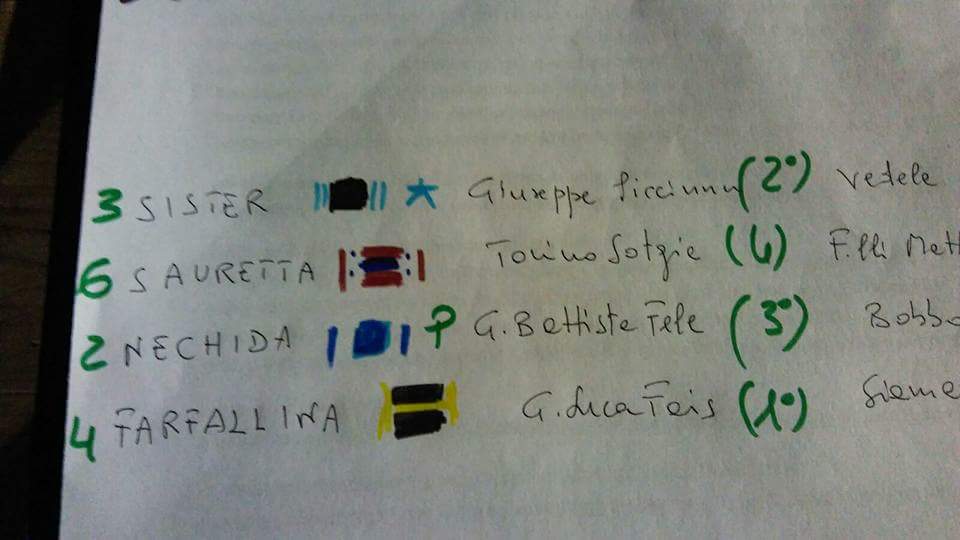 3 SISTER Giuseppe Piccinnu (2°) Vedele
6 SAURETTA Tonino Sotgie (4) F.lli
2 NECHIDA P G. Battista Fele (3°) Bobbo
4 FARFALLINA G. Luca Fais (1°)